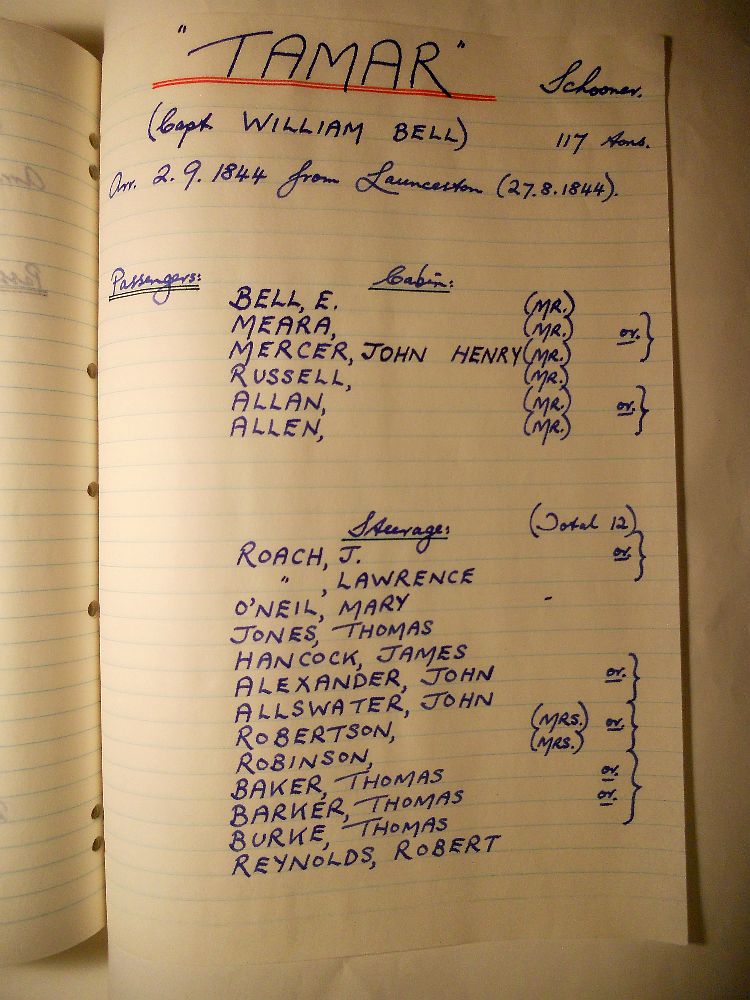 "TAMAR" Schooner.
(Capt. WILLIAM BELL) 117 tons.
Arr. 2.9.1844 from Launceston (27.8.1844).
Passengers: Cabin:
BELL, E. (MR.)
MEARA, (MR.) or. }
MERCER, JOHN HENRY (MR.)
RUSSELL, (MR.)
ALLAN, (MR.) or. }
ALLEN, (MR.)
Steerage: (Total 12)
ROACH, J. or. }
" , LAWRENCE
O'NEIL, MARY -
JONES, THOMAS
HANCOCK, JAMES
ALEXANDER, JOHN or. }
ALLSWATER, JOHN
ROBERTSON, (MRS.) or. }
ROBINSON, (MRS.)
BAKER, THOMAS or. }
BARKER, THOMAS or.
BURKE, THOMAS
REYNOLDS, ROBERT